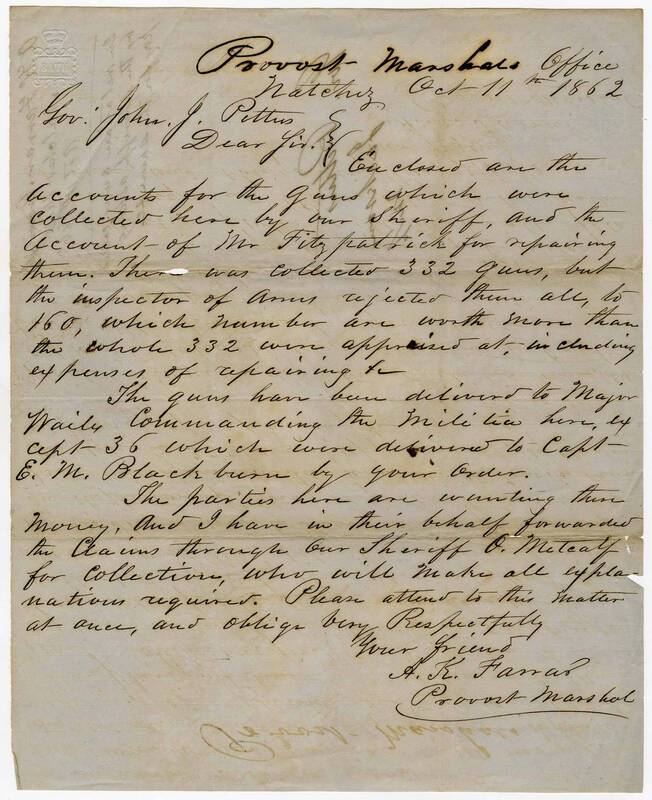 Provost Marshals Office
Natchez Oct 11th 1862
Gov: John. J. Pettus
Dear Sir.
Enclosed are the
Accounts for the guns which were
collected here by our Sheriff, and the
Account of Mr Fitzpatrick for repairing
them. There was collected 332 guns, but
the inspector of Arms rejected them all, to
160, which number are worth more than
the whole 332 were appraised at, including
expenses of repairing &c
The guns have been delivered to Major
Waily Commanding the Militia here, ex
cept 36 which were delivered to Capt
E. M. Blackburn by your Order.
The parties here are wanting there
Money, And I have in their behalf forwarded
the Claims through Our Sheriff O. Metcalf
for Collection, who will make all expla-
nations required. Please attend to this matter
at once, and oblige Very Respectfully
Your friend
A. K. Farrar
Provost Marshal